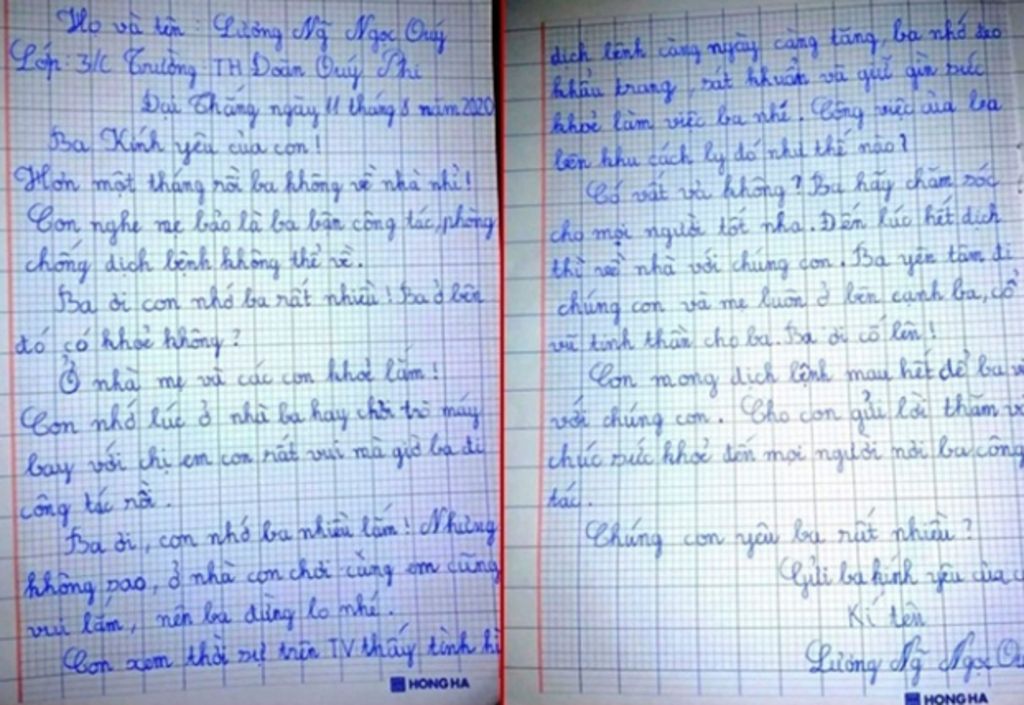 Họ và tên: Lương Nữ Ngọc Quý
Lớp: 3/C Trường TH Đoàn Quý Phi
Đại Thắng ngày 11 tháng 8 năm 2020
Ba Kính yêu của con!
Hơn một tháng rồi ba không về nhà nhỉ!
Con nghe mẹ bảo là ba bận công tác, phòng
chống dịch bệnh không thể về.
Ba ơi con nhớ ba rất nhiều! Ba ở bên
đó có khoẻ không?
Ở nhà mẹ và các con khoẻ lắm!
Con nhớ lúc ở nhà ba hay chơi trò máy
bay với chị em con rất vui mà giờ ba đi
công tác rồi.
Ba ơi, con nhớ ba nhiều lắm! Nhưng
không sao, ở nhà con chơi cùng em cũng
vui lắm, nên ba đừng lo nhé.
Con xem thời sự trên TV thấy tình hì
HONG HA
dịch bệnh càng ngày càng tăng, ba nhớ đeo
khẩu trang, sát khuẩn và giữ gìn sức
khoẻ làm việc ba nhé. Công việc của ba
bên khu cách ly đó như thế nào?
Có vất vả không? Ba hãy chăm sóc
cho mọi người tốt nha. Đến lúc hết dịch
thì về nhà với chúng con. Ba yên tâm đi
chúng con và mẹ luôn ở bên cạnh ba, cổ
vũ tinh thần cho ba. Ba ơi cố lên!
Con mong dịch bệnh mau hết để ba v
với chúng con. Cho con gửi lời thăm v
chúc sức khoẻ đến mọi người nơi ba công
tác.
Chúng con yêu ba rất nhiều?
Gửi ba kính yêu của c
Kí tên
Lương Nữ Ngọc Qu
HONG HA